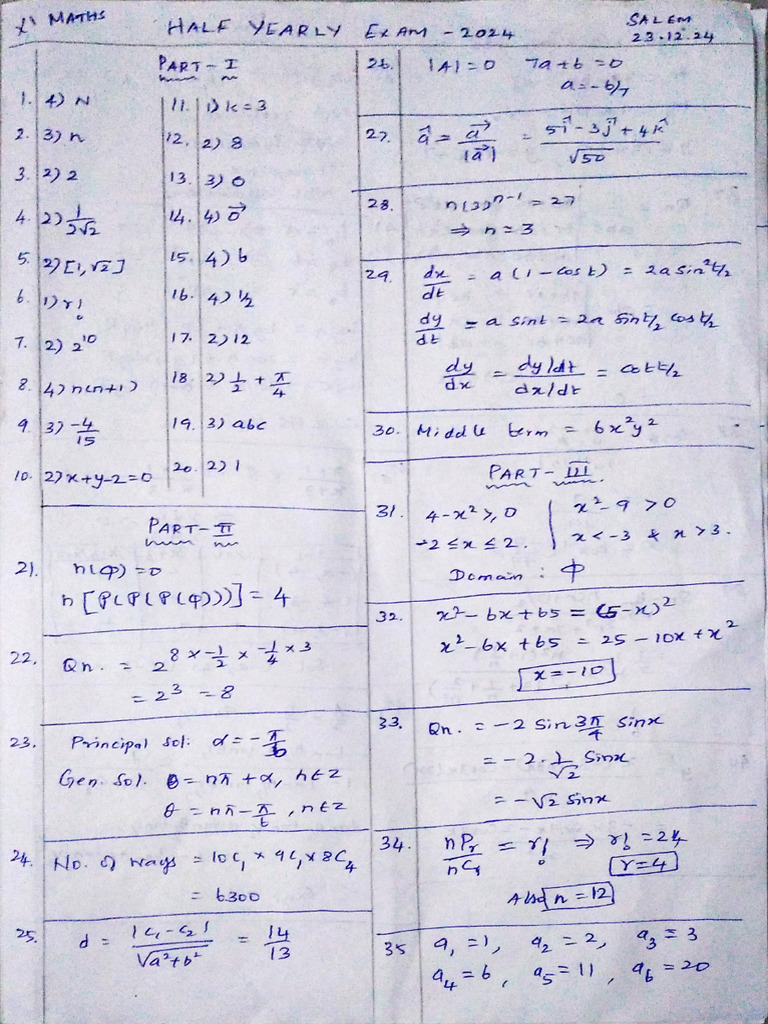 XI MATHS
HALF YEARLY EXAM - 2024
SALEM
23.12.24
PART - I
1. 4) N
2. 3) n
3. 2) 2
4. 2) 1/2√2
5. 2) [1, √2]
6. 1) r!
7. 2) 2^10
8. 4) n(n+1)
9. 3) -4/15
10. 2) x+y-2=0
11. 1) k=3
12. 2) 8
13. 3) 0
14. 4) 0⃗
15. 4) b
16. 4) 1/2
17. 2) 12
18. 2) 1/2 + π/4
19. 3) abc
20. 2) 1
PART - II
21. n(φ) = 0
n[P(P(P(φ)))] = 4
22. Qn. = 2^(8 × -1/2 × -1/4 × 3)
= 2³ = 8
23. Principal sol: α = -π/6
Gen. Sol. θ = nπ + α, n∈Z
θ = nπ - π/6, n∈Z
24. No. of ways = 10C₁ × 9C₁ × 8C₄
= 6300
25. d = |c₁-c₂|/√(a²+b²) = 14/13
26. |A| = 0 7a+b = 0
a = -b/7
27. â = a⃗/|a⃗| = (5i⃗ - 3j⃗ + 4k⃗)/√50
28. n(3)^(n-1) = 27
⇒ n = 3
29. dx/dt = a(1-cos t) = 2a sin² t/2
dy/dt = a sin t = 2a sin t/2 cos t/2
dy/dx = (dy/dt)/(dx/dt) = cot t/2
30. Middle term = 6x²y²
PART - III
31. 4-x² ≥ 0 | x²-9 > 0
-2 ≤ x ≤ 2. | x < -3 & x > 3.
Domain : φ
32. x²-6x+65 = (5-x)²
x²-6x+65 = 25-10x+x²
x = -10
33. Qn. = -2 sin 3π/4 sin x
= -2. 1/√2 sin x
= -√2 sin x
34. nPr/nCr = r! ⇒ r! = 24
r = 4
Also n = 12
35 a₁ = 1, a₂ = 2, a₃ = 3
a₄ = 6, a₅ = 11, a₆ = 20